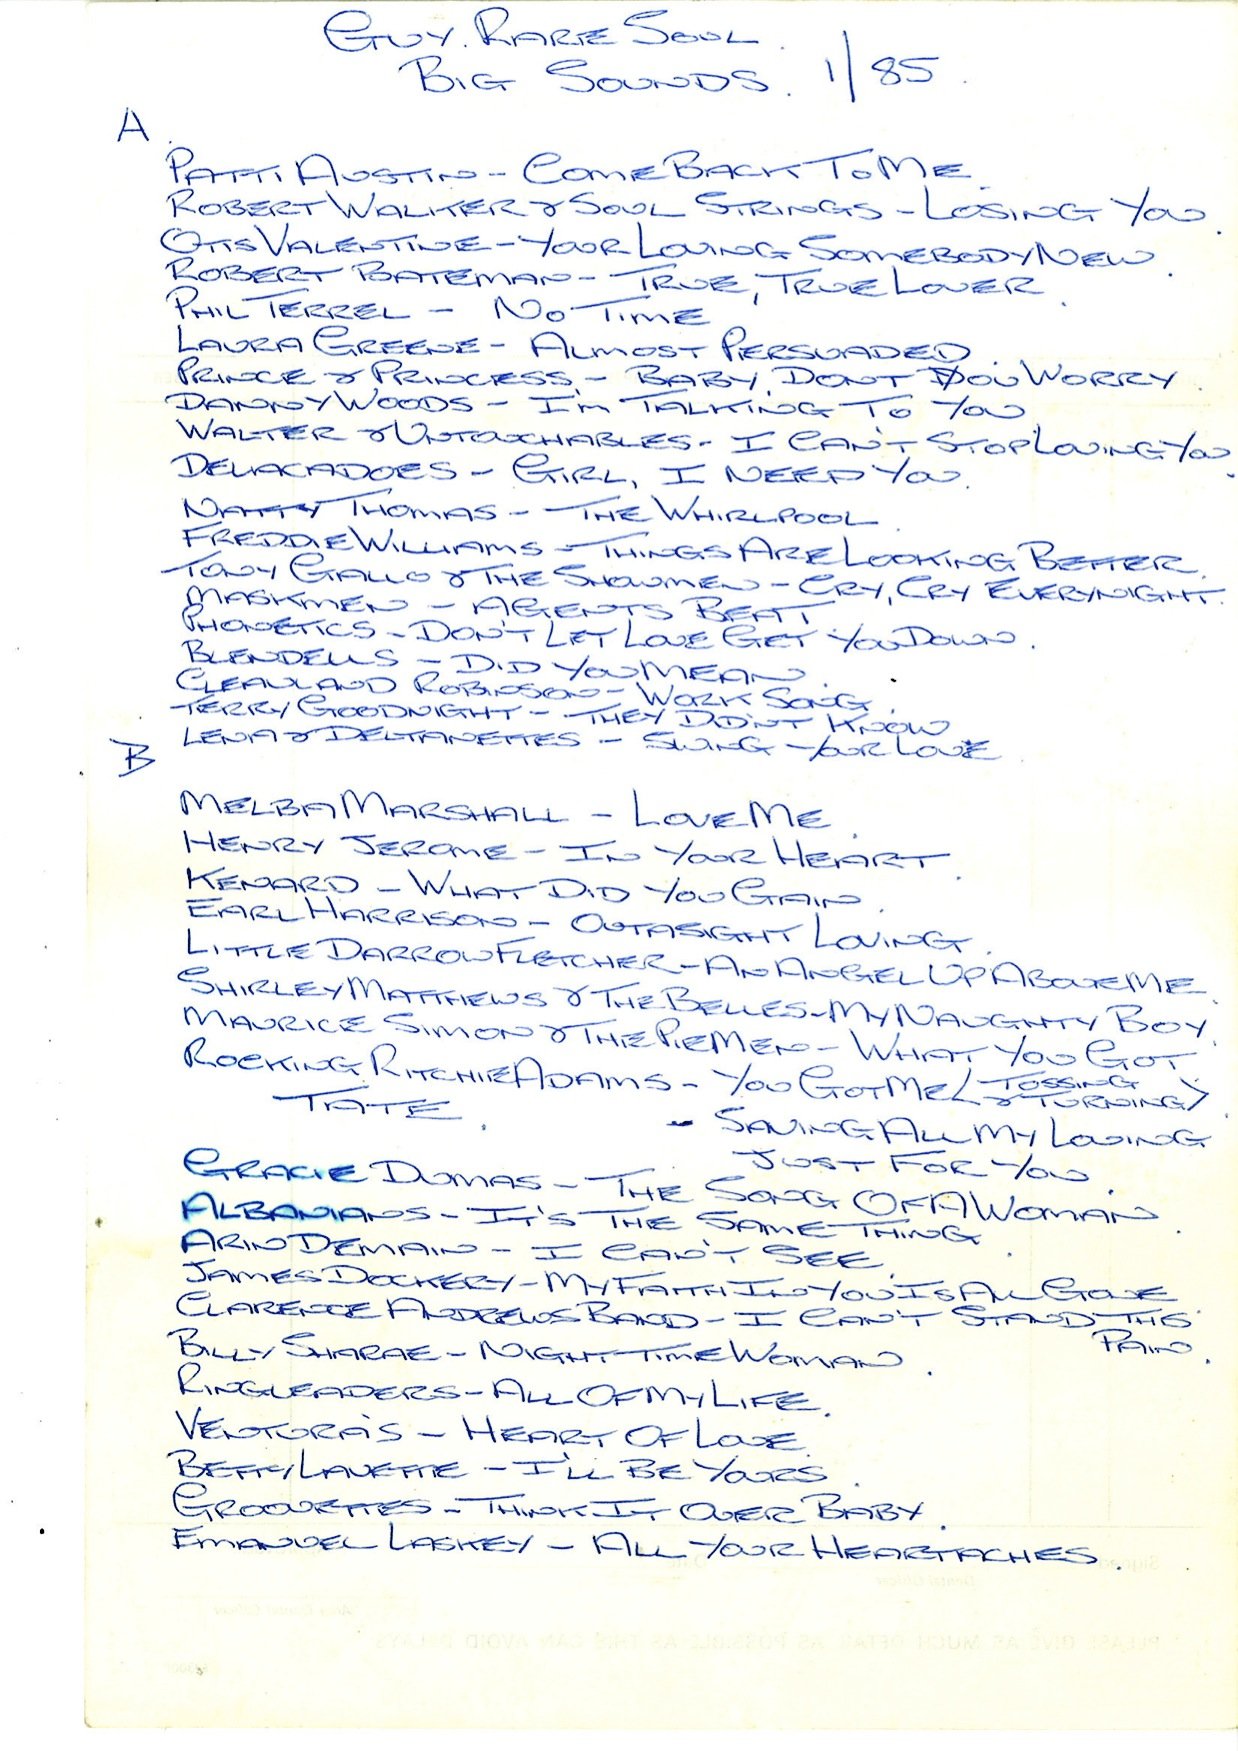 GUY. RARE SOUL.
BIG SOUNDS. 1/85.
A.
PATTI AUSTIN - COME BACK TO ME.
ROBERT WALKER & SOUL STRINGS - LOSING YOU.
OTIS VALENTINE - YOUR LOVING SOMEBODY NEW.
ROBERT BATEMAN - TRUE, TRUE LOVER.
PHIL TERREL - NO TIME
LAURA GREENE - ALMOST PERSUADED.
PRINCE & PRINCESS - BABY, DON'T YOU WORRY.
DANNY WOODS - I'M TALKING TO YOU
WALTER & UNTOUCHABLES - I CAN'T STOP LOVING YOU.
DELACADOES - GIRL, I NEED YOU.
NATTY THOMAS - THE WHIRLPOOL.
FREDDIE WILLIAMS - THINGS ARE LOOKING BETTER.
TONY GALLO & THE SHOWMEN - CRY, CRY EVERYNIGHT.
MASKMEN - AGENTS BEAT
PHONETICS - DON'T LET LOVE GET YOU DOWN.
BLENDELLS - DID YOU MEAN.
CLEAVLAND ROBINSON - WORK SONG.
TERRY GOODNIGHT - THEY DIDN'T KNOW
LENA & DELTANETTES - SWING YOUR LOVE
B
MELBA MARSHALL - LOVE ME.
HENRY JEROME - IN YOUR HEART.
KENARD - WHAT DID YOU GAIN.
EARL HARRISON - OUTASIGHT LOVING.
LITTLE DARROW FLETCHER - AN ANGEL UP ABOVE ME.
SHIRLEY MATTHEWS & THE BELLES - MY NAUGHTY BOY.
MAURICE SIMON & THE PIEMEN - WHAT YOU GOT
ROCKING RITCHIE ADAMS - YOU GOT ME (TOSSING & TURNING)
TATE. - SAVING ALL MY LOVING
JUST FOR YOU.
GRACIE DUMAS - THE SONG OF A WOMAN.
ALBANIANS - IT'S THE SAME THING.
ARIN DEMAIN - I CAN'T SEE.
JAMES DOCKERY - MY FAITH IN YOU IS ALL GONE
CLARENCE ANDREWS BAND - I CAN'T STAND THIS
PAIN.
BILLY SHARAE - NIGHT TIME WOMAN.
RINGLEADERS - ALL OF MY LIFE.
VENTURA'S - HEART OF LOVE.
BETTY LAVETTE - I'LL BE YOURS.
GROOVETTES - THINK IT OVER BABY.
EMANUEL LASKEY - ALL YOUR HEARTACHES.